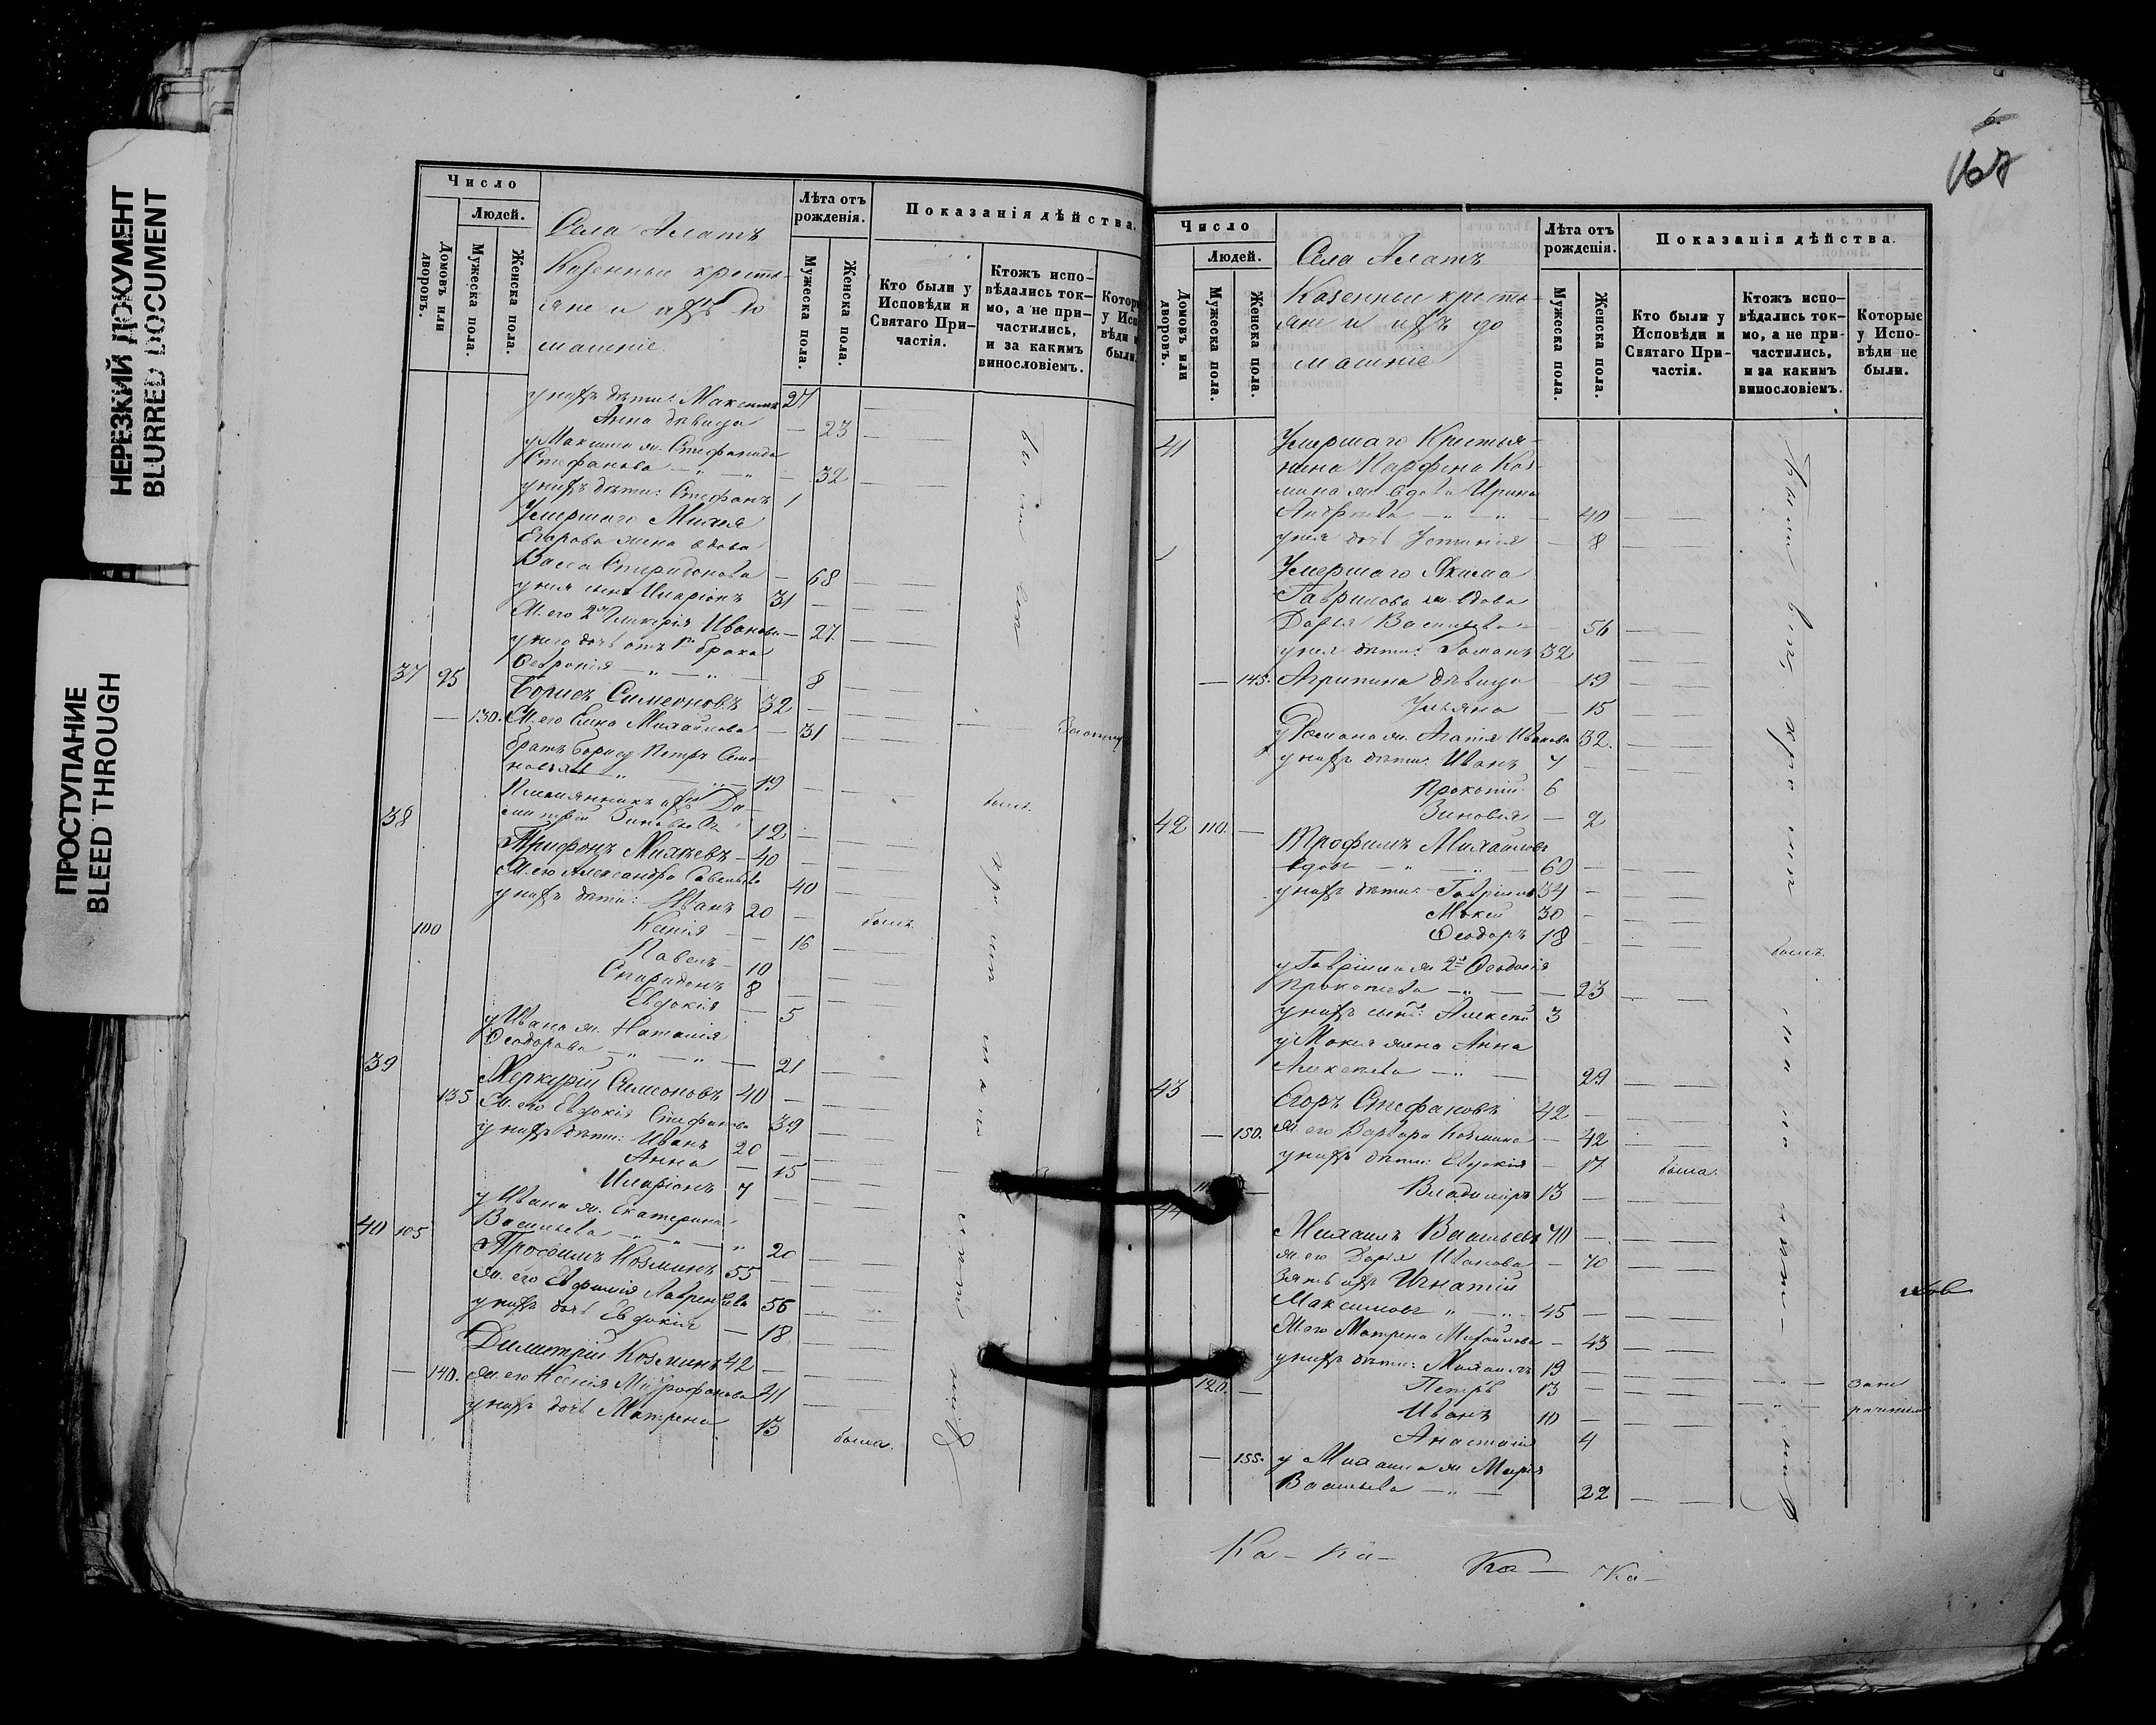 НЕРЕЗКИЙ ДОКУМЕНТ
BLURRED DOCUMENT
ПРОСТУПАНИЕ
BLEED THROUGH
Число
Людей.
Домовъ или дворовъ.
Мужеска пола.
Женска пола.
Села Алатъ
Казенныи кресть-
яне и ихъ до
машніе.
Лѣта отъ рожденія.
Мужеска пола.
Женска пола.
Показанія дѣйства.
Кто были у Исповѣди и Святаго При-частія.
Ктожъ испо-вѣдались ток-мо, а не при-частились, и за какимъ винословіемъ.
у нихъ дѣти: Максимъ 27
Анна дѣвица — 23
у Максима ж. Стефанида
Стефанова — 32
у нихъ дѣти: Стефанъ 1
Умершаго Михея
Егорова жена вдова
Васса Спиридонова — 68
у нея сынъ Иларіонъ 31
Ж. его 2я Гликерія Иванова — 27
у него дочь отъ 1го брака
Февронія — 8
37 95 Борисъ Симеоновъ 32
130. Ж. его Елена Михайлова — 31
братъ Бориса Петръ Симе
новъ 19
Племянникъ ихъ Ди
митрій Зиновьевъ 12
38 Трифонъ Михѣевъ — 40
Ж. его Александра Савельева 40
у нихъ дѣти: Иванъ 20
Ксенія — 16 была.
100 Павелъ — 10
Спиридонъ 8
Евдокія — 5
у Ивана ж. Наталія
Ѳеодорова — 21
39 Меркурій Симеоновъ 40
135 Ж. его Евдокія Стефанова 39
у нихъ дѣти: Иванъ 20
Анна — 15
Иларіонъ 7
у Ивана ж. Екатерина
Васильева — 20
40 105 Трофимъ Козминъ 55
Ж. его Евфимія Лаврентьева 56
у нихъ дочь Евдокія — 18
Димитрій Козминъ 42
140. Ж. его Ксенія Митрофанова 41
у нихъ дочь Матрена 13 была.
167
Число
Людей.
Домовъ или дворовъ.
Мужеска пола.
Женска пола.
Села Алатъ
Казенныи кресть-
яне и ихъ до
машніе
Лѣта отъ рожденія.
Мужеска пола.
Женска пола.
Показанія дѣйства.
Кто были у Исповѣди и Святаго При-частія.
Ктожъ испо-вѣдались ток-мо, а не при-частились, и за какимъ винословіемъ.
Которые у Испо-вѣди не были.
41 Умершаго Крестья-
нина Парфена Коз-
мина ж. вдова Ирина
40
у нея дочь Устинія — 8
Умершаго Якима
Гаврилова ж. вдова
Дарья Васильева — 56
у нея дѣти: Романъ 32
145. Агрипина дѣвица 19
Ульяна — 15
у Романа ж. Агапія Иванова 32.
у нихъ дѣти: Иванъ 7
Прокопій 6
Зиновія — 2
42 110. Трофимъ Михайловъ
вдовъ — 60
у нихъ дѣти: Гавріилъ 34
Мокей 30
Ѳеодоръ 18
у Гавріила ж 2я Ѳеодосія
Прокопьева — 23
у нихъ сынъ: Алексѣй 3
у Мокея жена Анна
Алексѣева — 29
43 Егоръ Стефановъ 42
150. Ж. его Варвара Козмина — 42
у нихъ дѣти: Евдокія — 17 была.
Владиміръ 13
44 Михаилъ Васильевъ 70
Ж. его Дарія Иванова — 70
Зять ихъ Игнатій
Максимовъ 45
Ж. его Матрена Михайлова — 43
у нихъ дѣти: Михаилъ 19
120. Петръ 13
Иванъ 10
Анастасія 4
155. у Михаила ж Марія
Васильева — 22
Ка- Ка- Ка- Ка-